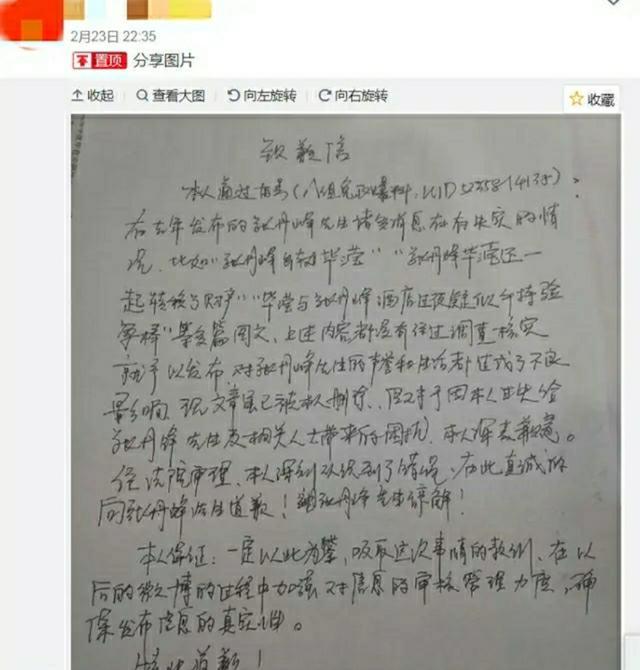 2月23日 22:35
置顶 分享图片
收起 查看大图 向左旋转 向右旋转
收藏
致歉信
本人通过账号(八组兔区爆料,UID 5235814135),
在去年发布的张丹峰先生诸多消息存在失实的情
况,比如"张丹峰 毕滢""张丹峰毕滢还一
起转移了财产""毕滢与张丹峰酒店过夜疑似 持验
孕棒"等多篇图文,上述内容都没有经过调查核实
就予以发布,对张丹峰先生的声誉和生活都造成了不良
影响,现文章虽已被本人删除,但对于因本人过失给
张丹峰先生及相关人士带来的困扰,本人深表歉意。
经法院审理,本人深刻认识到了错误,在此真诚的
向张丹峰先生道歉!望张丹峰先生谅解!
本人保证:一定以此为鉴,吸取这次事情的教训,在以
后的发微博的过程中加强对信息的审核管理力度,确
保发布信息的真实性。
特此道歉!